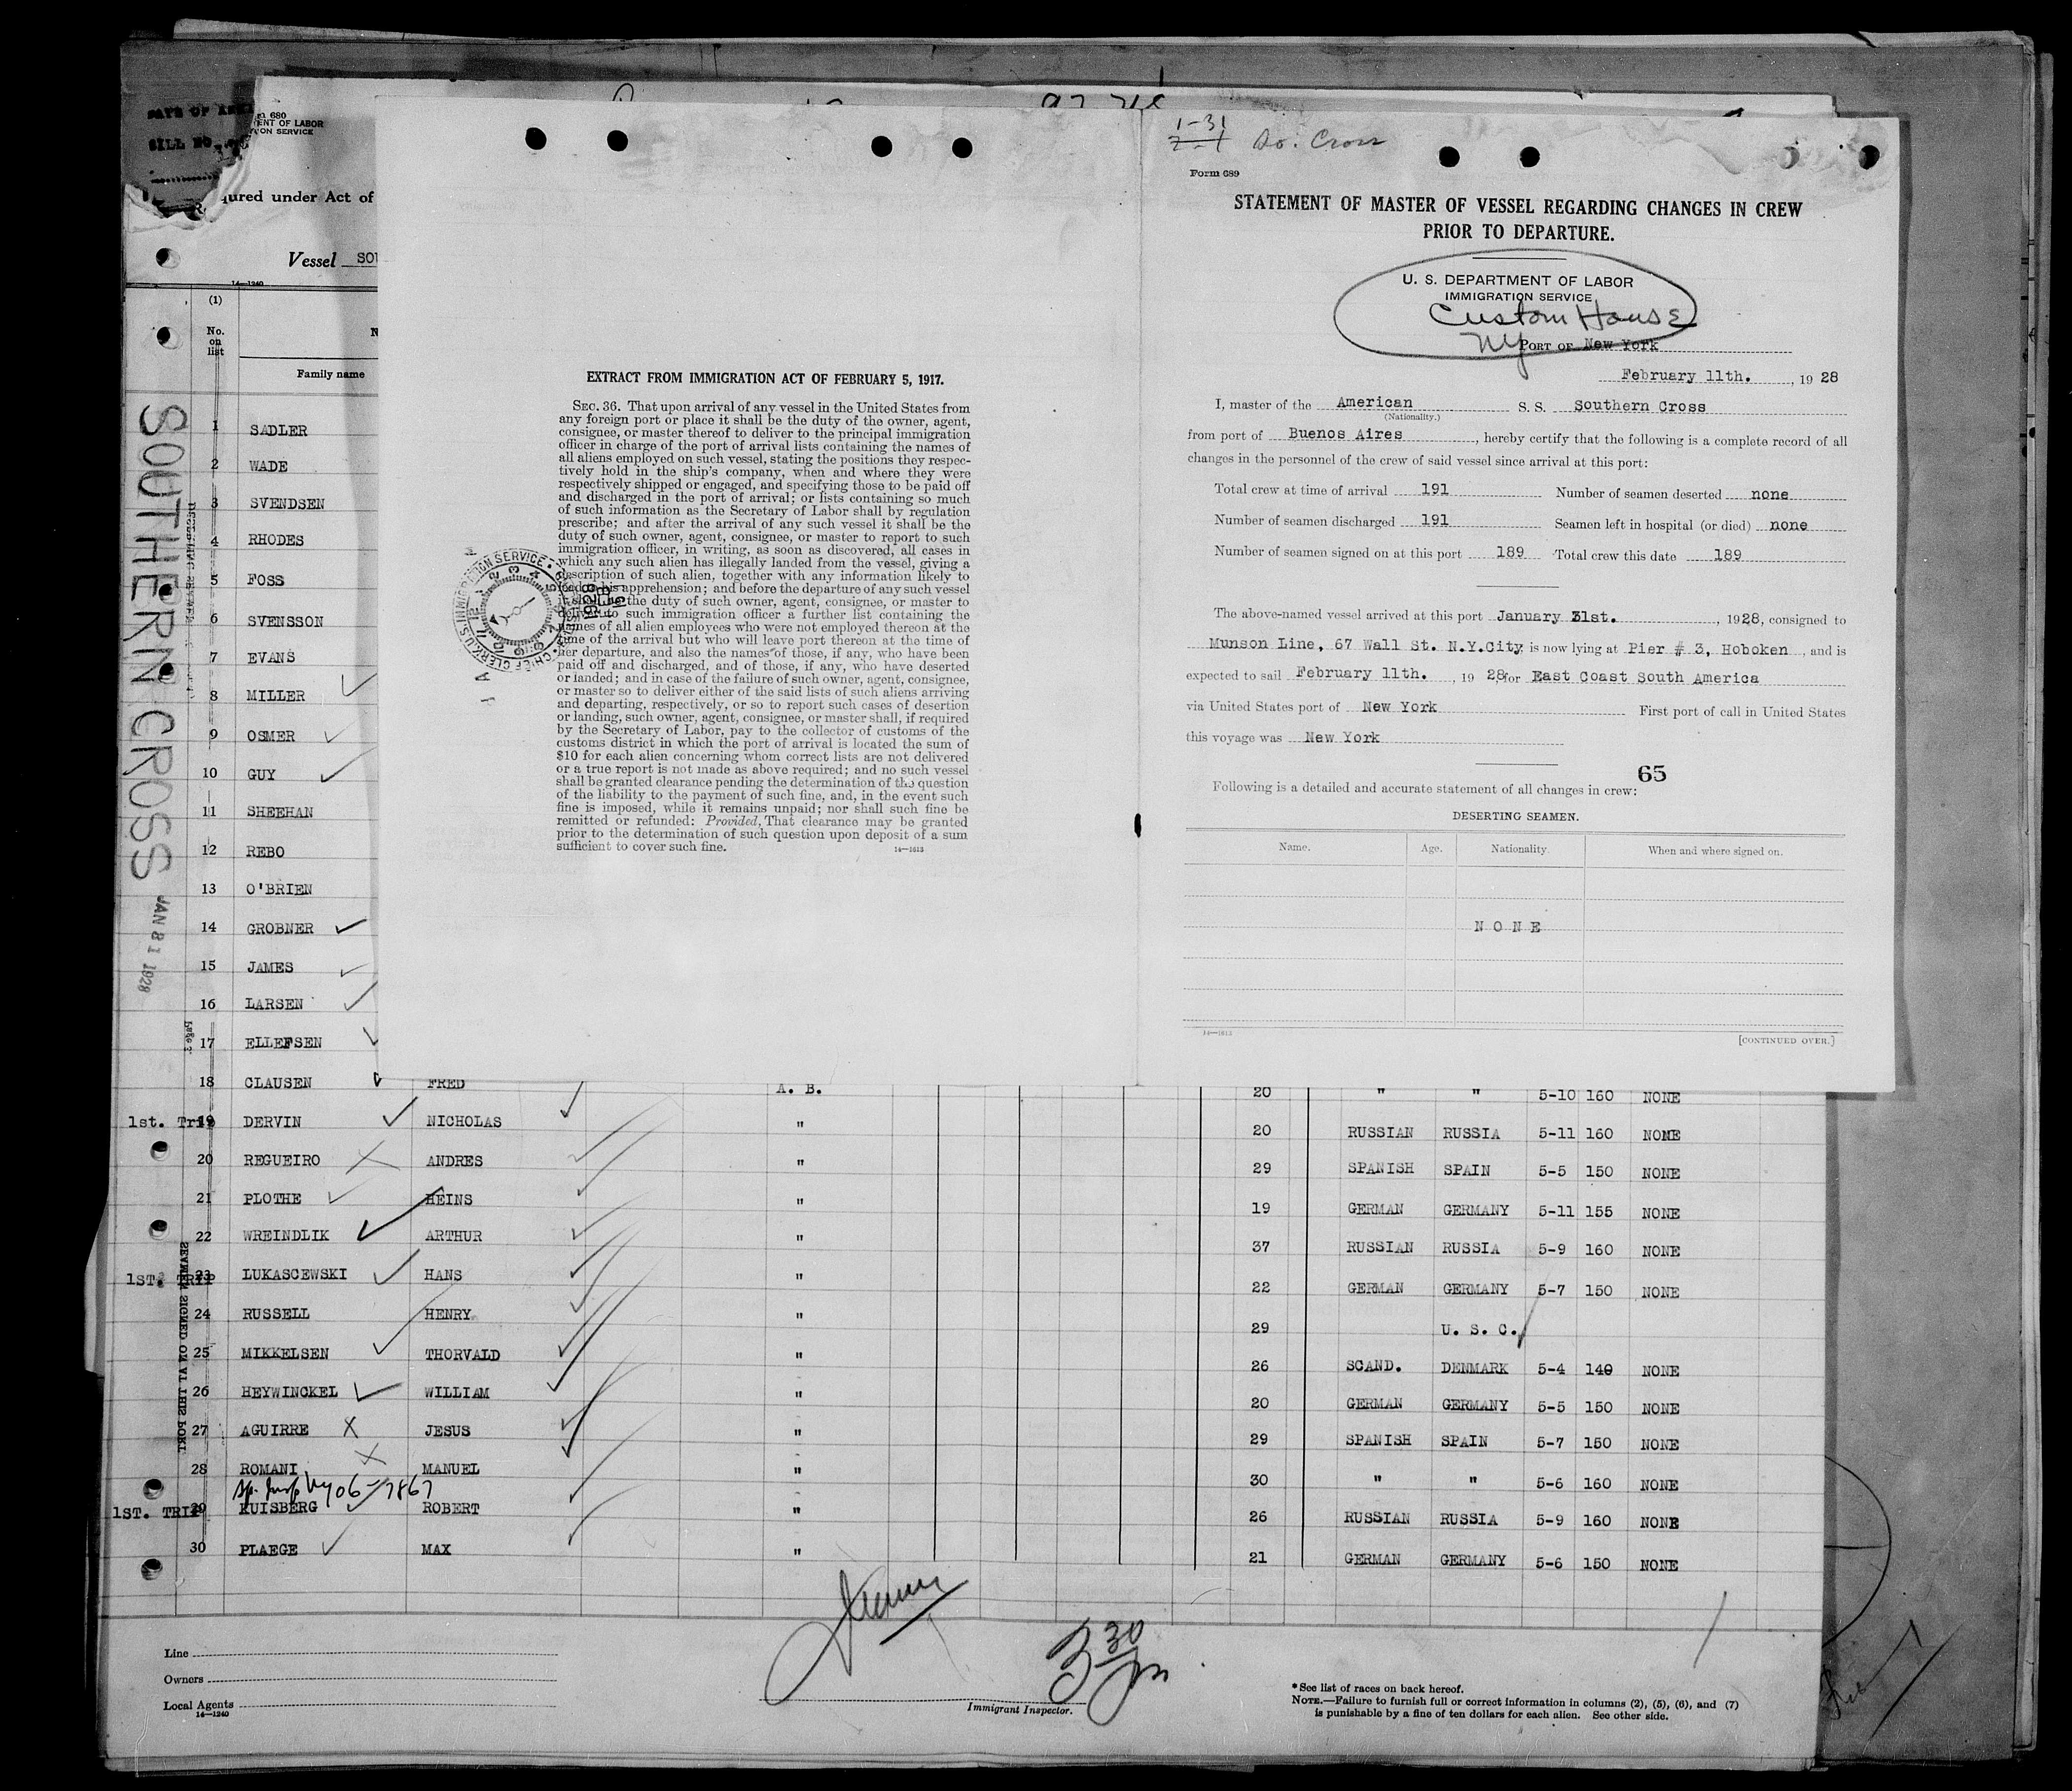 1-31
So. Cross
Form 689
STATEMENT OF MASTER OF VESSEL REGARDING CHANGES IN CREW
PRIOR TO DEPARTURE.
U. S. DEPARTMENT OF LABOR
IMMIGRATION SERVICE
Custom House
NY
PORT OF New York
February 11th. , 19 28
I, master of the American S. S. Southern Cross
(Nationality.)
from port of Buenos Aires , hereby certify that the following is a complete record of all
changes in the personnel of the crew of said vessel since arrival at this port:
Total crew at time of arrival 191 Number of seamen deserted none
Number of seamen discharged 191 Seamen left in hospital (or died) none
Number of seamen signed on at this port 189 Total crew this date 189
The above-named vessel arrived at this port January 31st. , 1928, consigned to
Munson Line, 67 Wall St. N.Y.City, is now lying at Pier # 3, Hoboken , and is
expected to sail February 11th. , 19 28, for East Coast South America
via United States port of New York First port of call in United States
this voyage was New York
65
Following is a detailed and accurate statement of all changes in crew:
DESERTING SEAMEN.
Name. Age. Nationality. When and where signed on.
NONE
14—1613
[CONTINUED OVER.]
EXTRACT FROM IMMIGRATION ACT OF FEBRUARY 5, 1917.
SEC. 36. That upon arrival of any vessel in the United States from
any foreign port or place it shall be the duty of the owner, agent,
consignee, or master thereof to deliver to the principal immigration
officer in charge of the port of arrival lists containing the names of
all aliens employed on such vessel, stating the positions they respec-
tively hold in the ship's company, when and where they were
respectively shipped or engaged, and specifying those to be paid off
and discharged in the port of arrival; or lists containing so much
of such information as the Secretary of Labor shall by regulation
prescribe; and after the arrival of any such vessel it shall be the
duty of such owner, agent, consignee, or master to report to such
immigration officer, in writing, as soon as discovered, all cases in
which any such alien has illegally landed from the vessel, giving a
description of such alien, together with any information likely to
lead to his apprehension; and before the departure of any such vessel
it shall be the duty of such owner, agent, consignee, or master to
deliver to such immigration officer a further list containing the
names of all alien employees who were not employed thereon at the
time of the arrival but who will leave port thereon at the time of
her departure, and also the names of those, if any, who have been
paid off and discharged, and of those, if any, who have deserted
or landed; and in case of the failure of such owner, agent, consignee,
or master so to deliver either of the said lists of such aliens arriving
and departing, respectively, or so to report such cases of desertion
or landing, such owner, agent, consignee, or master shall, if required
by the Secretary of Labor, pay to the collector of customs of the
customs district in which the port of arrival is located the sum of
$10 for each alien concerning whom correct lists are not delivered
or a true report is not made as above required; and no such vessel
shall be granted clearance pending the determination of the question
of the liability to the payment of such fine, and, in the event such
fine is imposed, while it remains unpaid; nor shall such fine be
remitted or refunded: Provided, That clearance may be granted
prior to the determination of such question upon deposit of a sum
sufficient to cover such fine.
14—1613
CHIEF CLERK U.S. IMMIGRATION SERVICE
680
ENT OF LABOR
ION SERVICE
ured under Act of
Vessel SOU
14—1240
(1)
No. on list
Family name
SOUTHERN CROSS JAN 31 1928
1 SADLER
2 WADE
3 SVENDSEN
4 RHODES
5 FOSS
6 SVENSSON
7 EVANS
8 MILLER
9 OSMER
10 GUY
11 SHEEHAN
12 REBO
13 O'BRIEN
14 GROBNER
15 JAMES
16 LARSEN
17 ELLEFSEN
18 CLAUSEN FRED A. B. 20 " " 5-10 160 NONE
1st. Trip 19 DERVIN NICHOLAS " 20 RUSSIAN RUSSIA 5-11 160 NONE
20 REGUEIRO ANDRES " 29 SPANISH SPAIN 5-5 150 NONE
21 PLOTHE HEINS " 19 GERMAN GERMANY 5-11 155 NONE
22 WREINDLIK ARTHUR " 37 RUSSIAN RUSSIA 5-9 160 NONE
1ST. TRIP 23 LUKASCEWSKI HANS " 22 GERMAN GERMANY 5-7 150 NONE
24 RUSSELL HENRY " 29 U. S. C.
25 MIKKELSEN THORVALD " 26 SCAND. DENMARK 5-4 140 NONE
26 HEYWINCKEL WILLIAM " 20 GERMAN GERMANY 5-5 150 NONE
27 AGUIRRE JESUS " 29 SPANISH SPAIN 5-7 150 NONE
28 ROMANI MANUEL " 30 " " 5-6 160 NONE
1ST. TRIP 29 KUISBERG ROBERT " 26 RUSSIAN RUSSIA 5-9 160 NONE
30 PLAEGE MAX " 21 GERMAN GERMANY 5-6 150 NONE
SEAMEN SIGNED ON AT THIS PORT
Line
Owners
Local Agents
14—1240
3 30
Immigrant Inspector.
* See list of races on back hereof.
NOTE.—Failure to furnish full or correct information in columns (2), (5), (6), and (7)
is punishable by a fine of ten dollars for each alien. See other side.